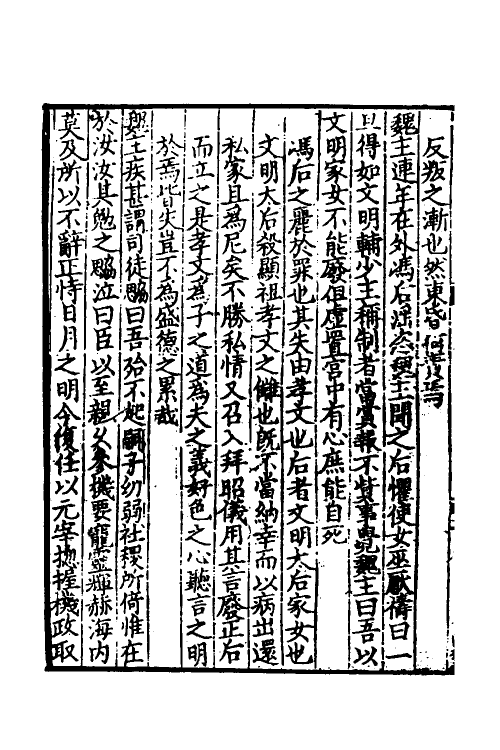 反叛之漸也然東昏何責焉
魏主連年在外馮后淫恣魏主聞之后懼使女巫厭禱曰一
旦得如文明輔少主稱制者當賞報不貲事覺魏主曰吾以
文明家女不能廢但虛置宮中有心庶能自死
馮后之罷於罪也其失由孝文也后者文明太后家女也
文明太后殺顯祖孝文之讎也既不當納幸而以病出還
私家且為尼矣不勝私情又召入拜昭儀用其言廢正后
而立之是孝文為子之道為夫之義好色之心聽言之明
於焉皆失豈不為盛德之累哉
魏主疾甚謂司徒勰曰吾殆不起嗣子幼弱社稷所倚惟在
於汝汝其勉之勰泣曰臣以至親久參機要寵靈輝赫海内
莫及所以不辭正恃日月之明今復任以元宰揔握機政取